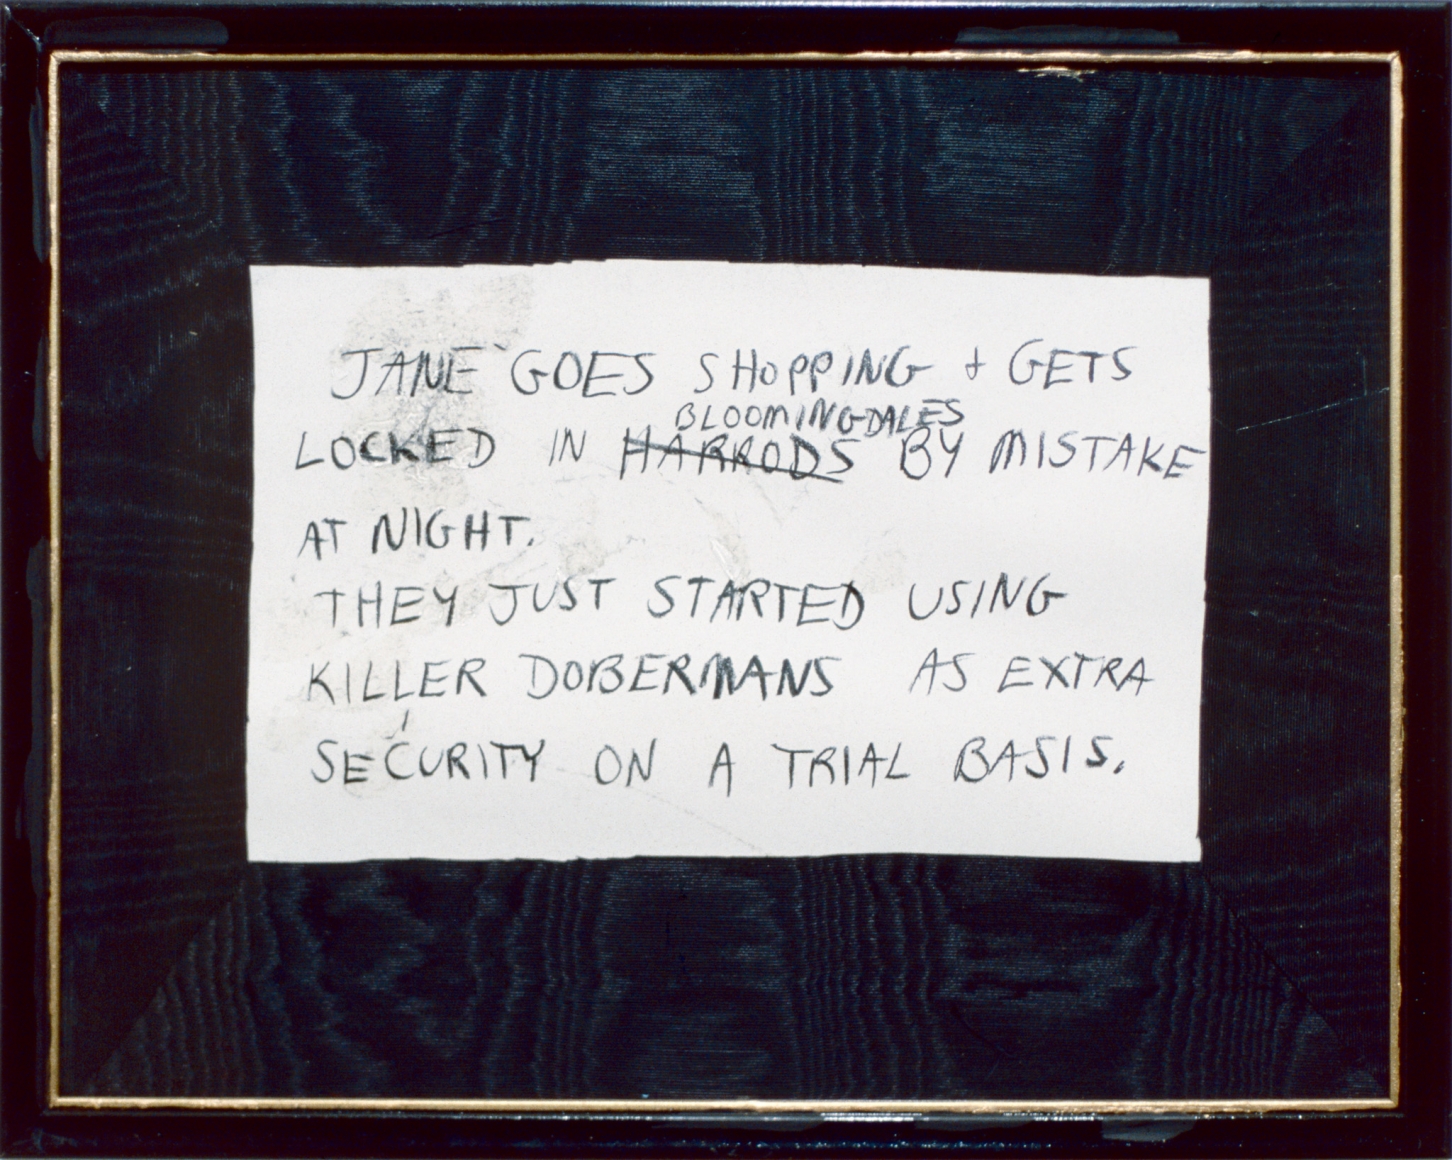 JANE GOES SHOPPING + GETS
BLOOMINGDALES
LOCKED IN HARRODS BY MISTAKE
AT NIGHT.
THEY JUST STARTED USING
KILLER DOBERMANS AS EXTRA
SECURITY ON A TRIAL BASIS.